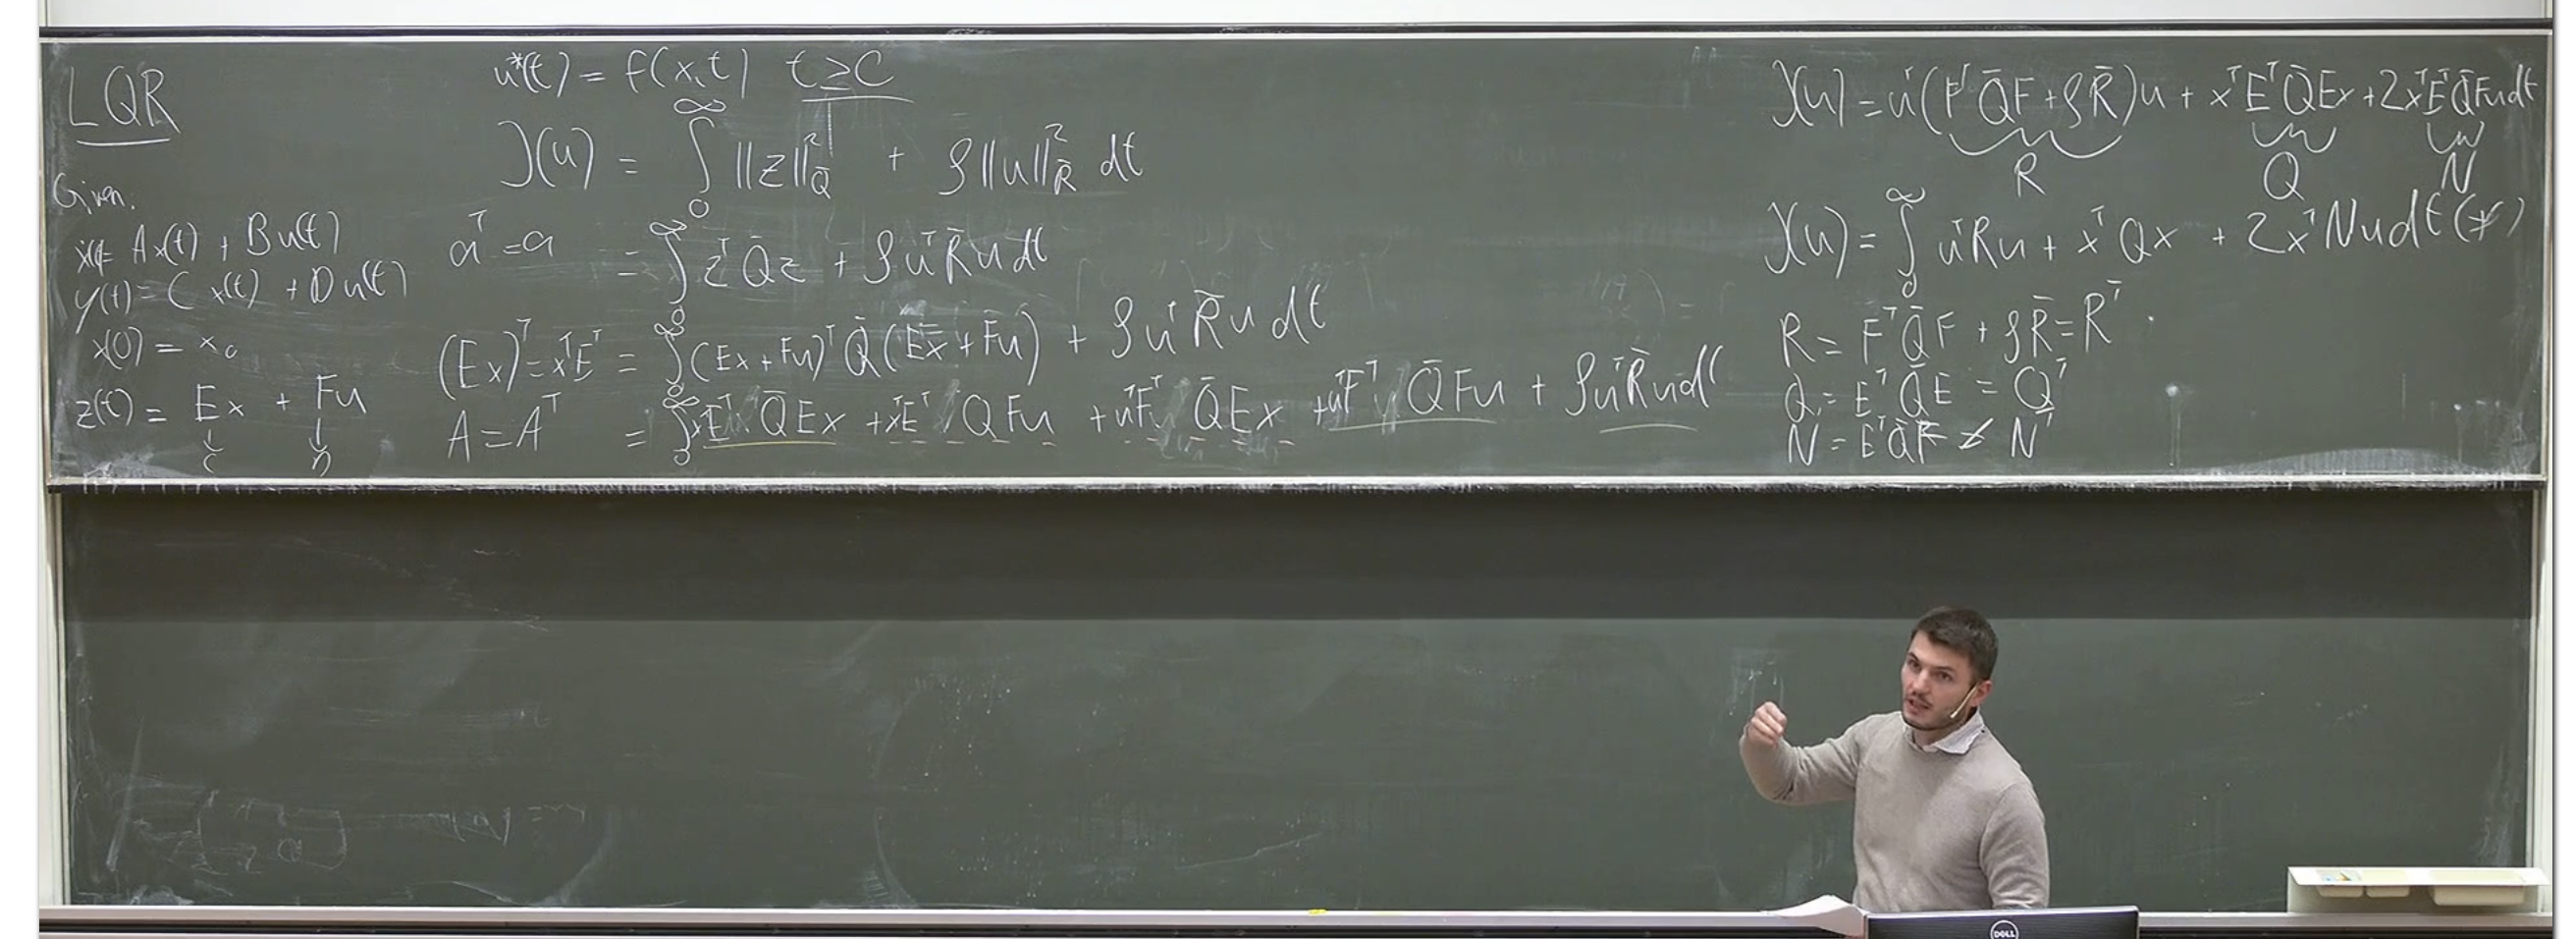 LQR
Given.
ẋ(t) = Ax(t) + Bu(t)
y(t) = C x(t) + Du(t)
x(0) = x₀
z(t) = Ex + Fu
↓ ↓
C D
u*(t) = f(x,t) t ≥ C
J(u) = ∫₀^∞ ||z||²_Q̄ + ρ||u||²_R̄ dt
aᵀ = a
= ∫₀^∞ zᵀQ̄z + ρuᵀR̄u dt
(Ex)ᵀ = xᵀEᵀ = ∫₀^∞ (Ex + Fu)ᵀ Q̄ (Ex + Fu) + ρuᵀR̄u dt
A = Aᵀ = ∫₀^∞ xᵀEᵀQ̄Ex + xᵀEᵀQFu + uᵀFᵀQ̄Ex + uᵀFᵀQ̄Fu + ρuᵀR̄u dt
J(u) = uᵀ(FᵀQ̄F + ρR̄)u + xᵀEᵀQ̄Ex + 2xᵀEᵀQ̄Fu dt
R Q N
J(u) = ∫₀^∞ uᵀRu + xᵀQx + 2xᵀNu dt (*)
R = FᵀQ̄F + ρR̄ = Rᵀ
Q = EᵀQ̄E = Qᵀ
N = EᵀQ̄F ≠ Nᵀ
DELL